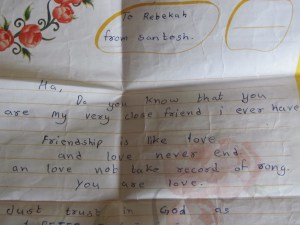 To Rebekah
from Santosh.
Ha,
Do you know that you
are my very close friend i ever have
Friendship is like love
and love never end
an love not take record of wrong.
You are love.
Just trust in God as